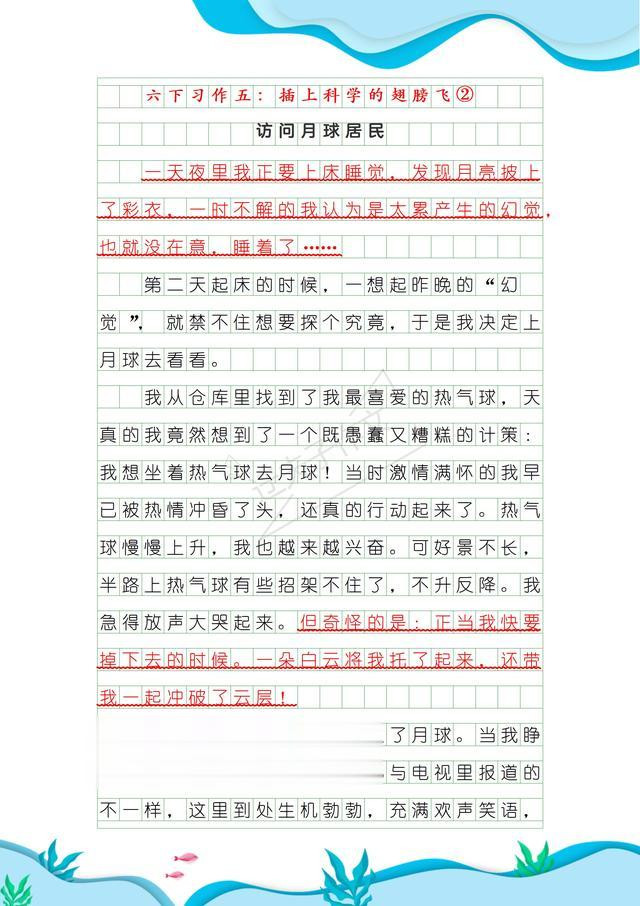 六下习作五：插上科学的翅膀飞②
访问月球居民
一天夜里我正要上床睡觉，发现月亮披上
了彩衣，一时不解的我认为是太累产生的幻觉，
也就没在意，睡着了……
第二天起床的时候，一想起昨晚的“幻
觉”，就禁不住想要探个究竟，于是我决定上
月球去看看。
我从仓库里找到了我最喜爱的热气球，天
真的我竟然想到了一个既愚蠢又糟糕的计策：
我想坐着热气球去月球！当时激情满怀的我早
已被热情冲昏了头，还真的行动起来了。热气
球慢慢上升，我也越来越兴奋。可好景不长，
半路上热气球有些招架不住了，不升反降。我
急得放声大哭起来。但奇怪的是：正当我快要
掉下去的时候。一朵白云将我托了起来，还带
我一起冲破了云层！
了月球。当我睁
与电视里报道的
不一样，这里到处生机勃勃，充满欢声笑语，